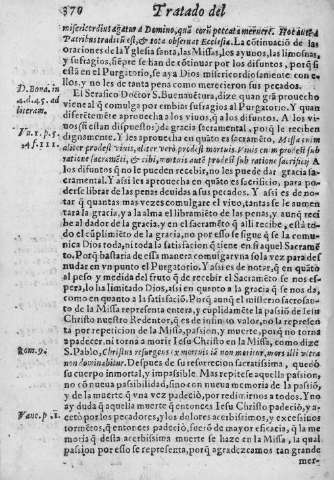 370 Tratado del
misericordius agatur à Domino, quã eorũ peccata meruere. Hoc autẽ à
Patribus traditũ est, & tota obseruat Ecclesia. La cõtinuaciõ de las
oraciones de la Yglesia santa, las Missas, los ayunos, las limosnas,
y sufragios, siẽpre se han de cõtinuar por los difuntos, porq̃ si
està en el Purgatorio, se aya Dios misericordiosamente con e-
llos, y no les de tanta pena como merecieron sus pecados.
D. Bona. in
4. d. 45. ad
literam.
El Serafico Doctor S. Buenauẽtura, dize quan grã prouecho
viene al q̃ comulga por embiar sufragios al Purgatorio. Y quan
discretẽmẽte aprouecha a los viuos, q̃ a los difuntos. A los vi-
uos (si estan dispuestos) da gracia sacramental, porq̃ le reciben
dignamente. Y les aprouecha en quãto es sacramẽto, Missa enim
aliter prodest viuis, aliter verò prodest mortuis. Viuis enim prodest sub
ratione sacramẽti, & cibi, mortuis autẽ prodest sub ratione sacrificij. A
los difuntos q̃ no le pueden recebir, no les puede dar gracia sa-
cramental. Y assi les aprouecha en quãto es sacrificio, para po-
derse librar de las penas deuidas a sus pecados. Y assi es de no-
tar q̃ quantas mas vezes comulgare el viuo, tantas se le aumen
tara la gracia, y a la alma el libramiẽto de las penas, y aunq̃ reci
be al dador de la gracia, y en el sacramẽto q̃ alli recibe, està to-
do el cũplimiẽto de la gracia, no por esso se sigue q̃ se la comu-
nica Dios toda, ni toda la satisfacion q̃ tiene en si aquel Sacramẽ
to. Porq̃ bastaria de essa manera comulgar vna sola vez para des
nudar en vn punto el Purgatorio. Y assi es de notar, q̃ en quãto
al peso y medida del fruto q̃ de recebir el Sacramẽto se nos es-
pera, lo ha limitado Dios, assi en quanto a la gracia q̃ se nos da,
como en quanto a la satisfaciõ. Porq̃ aunq̃ el misterio sacrosan-
to de la Missa representa entera, y cuplidamẽte la passiõ de Iesu
Christo nuestro Redentor, q̃ es de infinito valor, no la represen
ta por repeticion de la Missa, passion, y muerte, porq̃ no torna
a padecer, ni torna a morir Iesu Christo en la Missa, como dize
Rom. 9.
S. Pablo, Christus resurgens ex mortuis iã non moritur, mors illi vltra
non dominabitur. Despues de su resurreccion sacratissima, quedò
su cuerpo inmortal, y impasible. Mas repitese aquella passion,
no cõ nueua passibilidad, sino con nueua memoria de la passiõ,
y de la muerte q̃ vna vez padeciò, por redimirnos a todos. Y no
ay duda q̃ aquella muerte q̃ entonces Iesu Christo padeciò, y a-
cetò por los pecadores, y los dolores acerbissimos, y excessiuos
tormẽtos, q̃ entonces padeciò, fuerõ de mayor eficacia, q̃ la me
moria q̃ dessa acerbissima muerte se haze en la Missa, la qual
passion por esso se representa, porq̃ agradezcamos tan grande
mer-